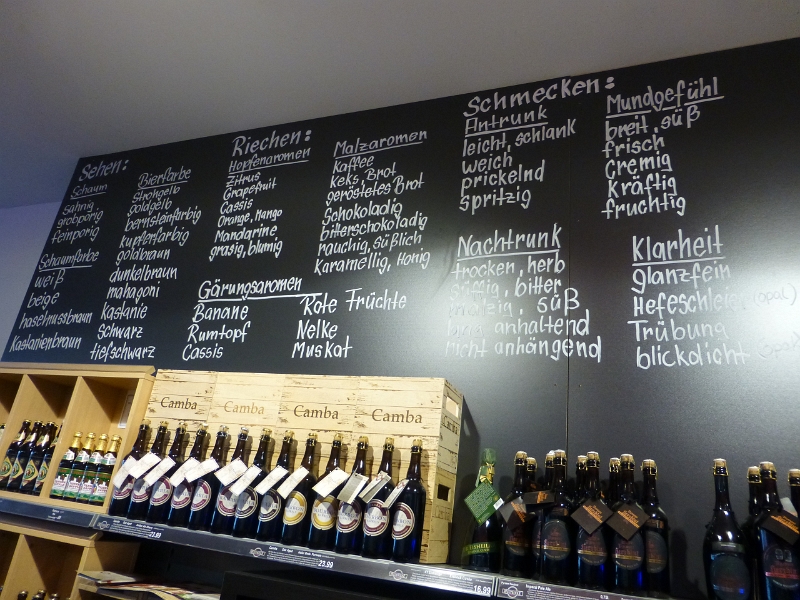 Sehen:
Schaum
sahnig
grobporig
feinporig
Schaumfarbe
weiß
beige
haselnussbraun
Kastanienbraun
Bierfarbe
Strohgelb
goldgelb
bernsteinfarbig
kupferfarbig
goldbraun
dunkelbraun
mahagoni
Kastanie
Schwarz
tiefschwarz
Riechen:
Hopfenaromen
Zitrus
Grapefruit
Cassis
Orange, Mango
Mandarine
grasig, blumig
Malzaromen
Kaffee
Keks, Brot
geröstetes Brot
Schokoladig
bitterschokoladig
rauchig, süßlich
Karamellig, Honig
Gärungsaromen
Banane
Rumtopf
Cassis
Rote Früchte
Nelke
Muskat
Schmecken:
Antrunk
leicht, schlank
weich
prickelnd
spritzig
Mundgefühl
breit, süß
frisch
Cremig
Kräftig
fruchtig
Nachtrunk
trocken, herb
süffig, bitter
süß
anhaltend
nicht anhängend
Klarheit
glanzfein
Hefeschleier (opal)
Trübung
blickdicht
Camba
Camba
Camba
Camba
23.99
16.99